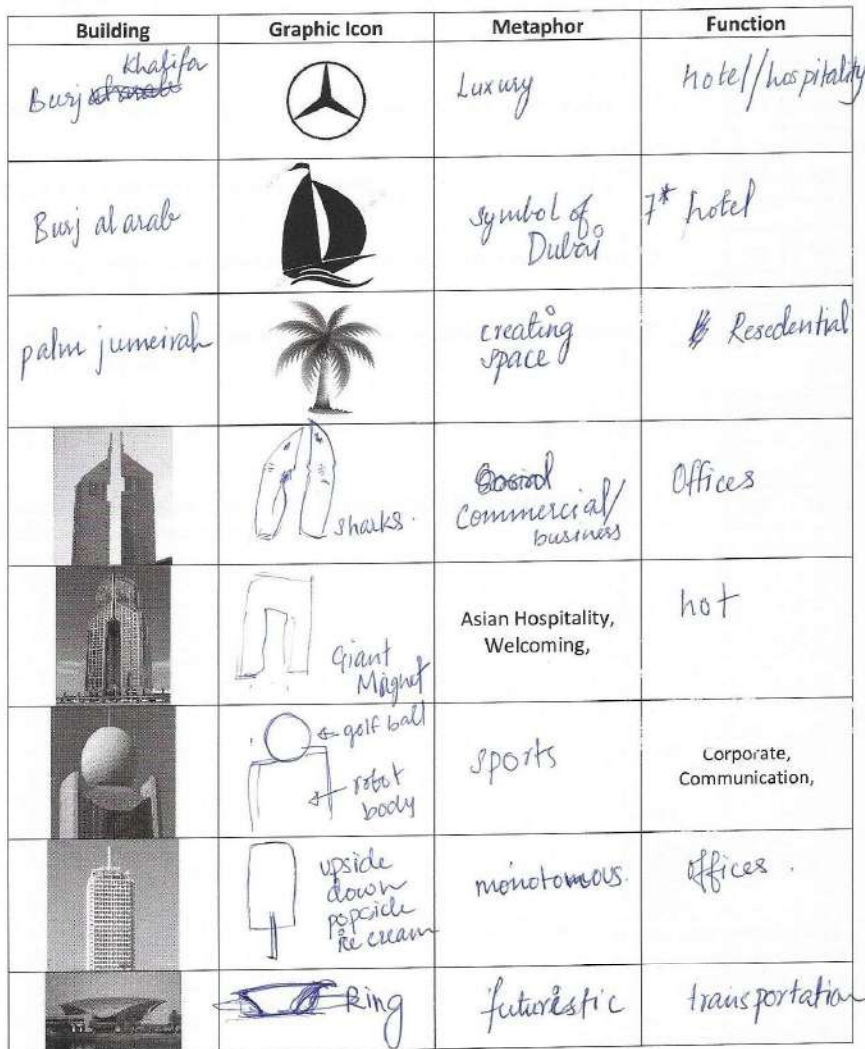 Building Graphic Icon Metaphor Function
Khalifa
Burj
Luxury
hotel/hospitality
Burj al arab
symbol of
Dubai
7* hotel
palm jumeirah
creating
space
Resedential
sharks.
Commercial/
business
Offices
Giant
Magnet
Asian Hospitality,
Welcoming,
hot
golf ball
robot
body
sports
Corporate,
Communication,
upside
down
popsicle
ice cream
monotomous.
offices.
Ring
futuristic
transportation